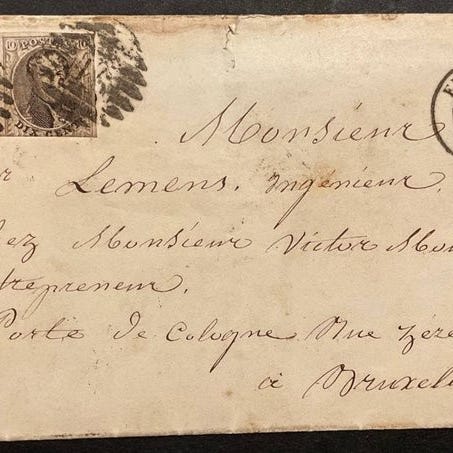 10 POSTES 10
DIX CENT
Monsieur
Lemens, Ingénieur,
hez Monsieur Victor Mon
trepreneur.
Porte de Cologne Rue
à Bruxel